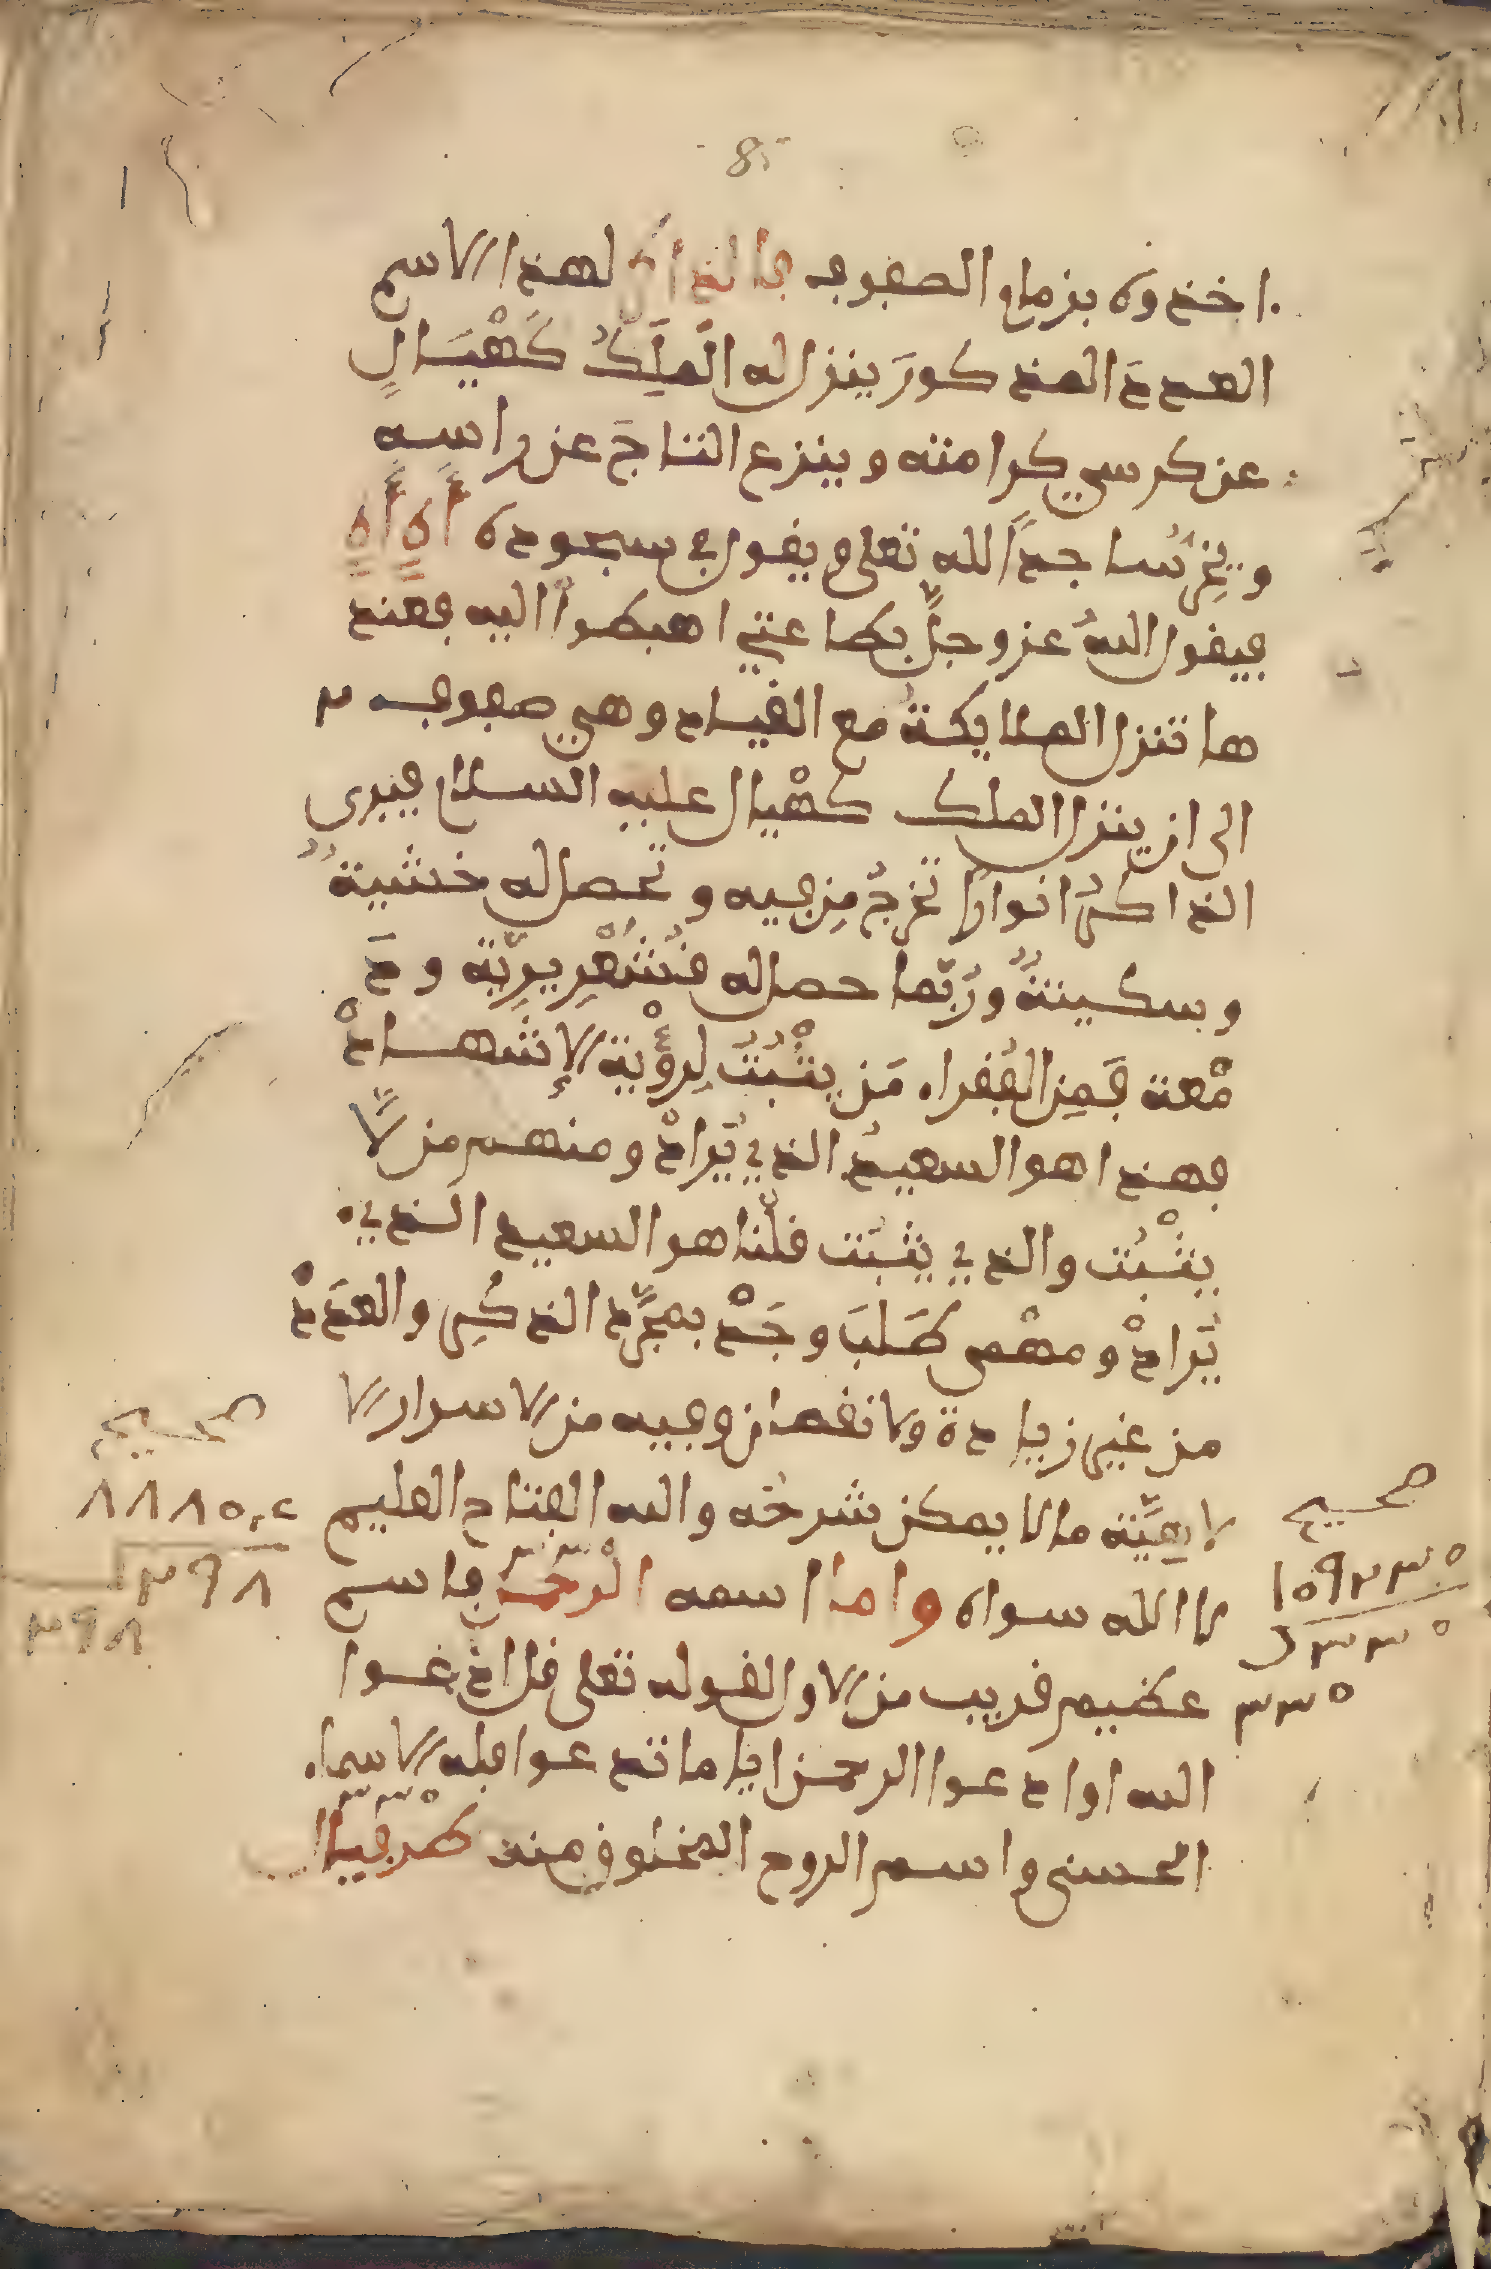 85
اخذوه بزمام الصفوف فالذاكر لهذا الاسم
العدد المذكور ينزل له الملك كَهْيَال
عن كرسي كرامته وينزع التاج عن راسه
ويخرّ ساجداً لله تعلى ويقول في سجوده أَاهٍ أَاهٍ
فيقول اللهُ عز وجلّ بطاعتي اهبطوا اليه فعند
ها تنزل الملايكة مع الفيام وهي صفوف ٣
الى ان ينزل الملك كهْيال عليه السلام فيرى
الذاكرُ انواراً تخرجُ مِن فيه وتحصل له خشيةٌ
وسكينةٌ ورُبّما حصل له قُشَعْرِيرِيّة ودَ
مْعة فَمِن الفُقراء مَن يثْبُتُ لِرؤْية الإشهادْ
فهذا هو السعيدُ الذي يُرادْ ومنهم من لاَّ
يثْبُت والذي يثبُت قلنا هو السعيد الذي
يُرادْ ومهْمى طَلبَ وجَدْ بمجرَّد الذكرِ والعدَدْ
من غير زيادة ولا نقصان وفيه من الاسرار الا
لاهِيَّة ما لا يمكن شرحُه والله الفتاح العليم
لا الله سواه واما اسمه الرحمٰن فاسم
عظيم قريب من الاول لقوله تعلى قل ادعوا
الله او ادعوا الرحمن ايا ما تدعوا فله الاسماء
الحسنى واسم الروح المخلوق منه
صحيح
٨٨٨٥٠٤
٣٩٨
٣٩٨
صحيح
١٥٩٣٣٥
٣٣٥
٣٣٥